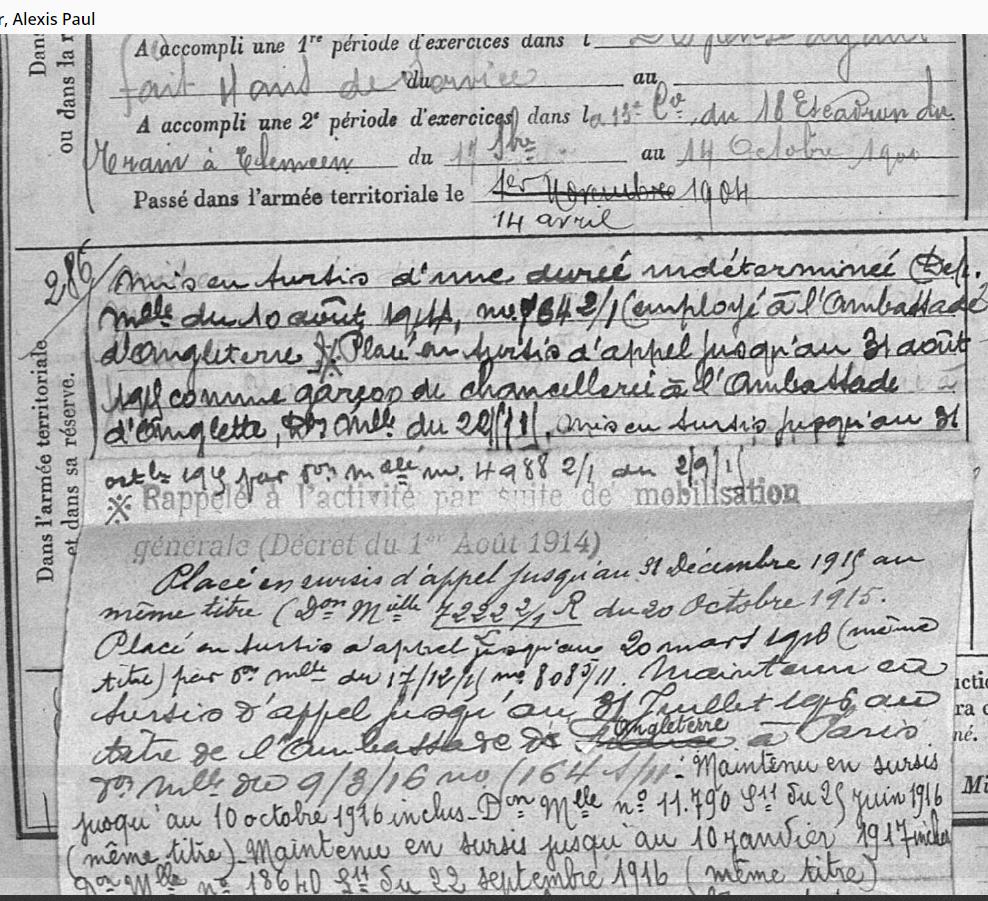 r, Alexis Paul
Dans
ou dans la r
A accompli une 1re période d'exercices dans l Dispensé ayant
fait 4 ans de service du au
A accompli une 2e période d'exercices dans la 13e Cie du 18 Escadron du
Train à Tlemcen du 17 7bre au 14 Octobre 1900
Passé dans l'armée territoriale le 1er Novembre 1904
14 avril
Dans l'armée territoriale
et dans sa réserve.
286/ Mis en sursis d'une durée indéterminée (Dep.
Mlle du 10 août 1914, no 7642/1 (employé à l'Ambassade
d'Angleterre ※ Placé en sursis d'appel jusqu'au 31 août
1915 comme garçon de chancellerie à l'Ambassade
d'Anglette, Don Mlle du 22/ Mis en sursis jusqu'au 31
octbre 1915 par Don Mlle no. 4988 2/1 du 2/9/15
※ Rappelé à l'activité par suite de mobilisation
générale (Décret du 1er Août 1914)
Placé en sursis d'appel jusqu'au 31 Décembre 1915 au
même titre (Don Mielle 7222 2/1 R du 20 Octobre 1915.
Placé en sursis d'appel jusqu'au 20 mars 1916 (même
titre) par Don mlle du 17/12/15 no 8085/11. Maintenu en
sursis d'appel jusqu'au 31 Juillet 1916 au
titre de l'Ambassade d' Angleterre à Paris
Don Mlle du 9/3/16 no 1164 /11. Maintenu en sursis
jusqu'au 10 octobre 1916 inclus. Don Mlle no 11.790 S11 du 25 juin 1916
(même titre). Maintenu en sursis jusqu'au 10 janvier 1917 inclus
Don Mlle no 18640 S11 du 22 septembre 1916 (même titre)
ictio
ra
né.
Mi